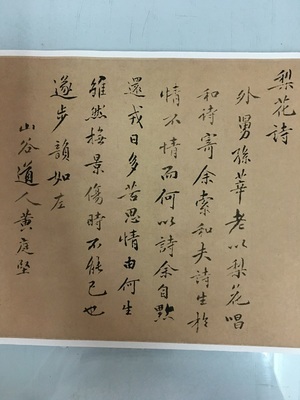 梨花詩
外舅孫莘老以梨花唱
和诗寄余索和夫诗生於
情不情而何以詩余自黜
還戎日多苦思情由何生
雖然撫景傷時不能已也
遂步韻如左
山谷道人黄庭坚